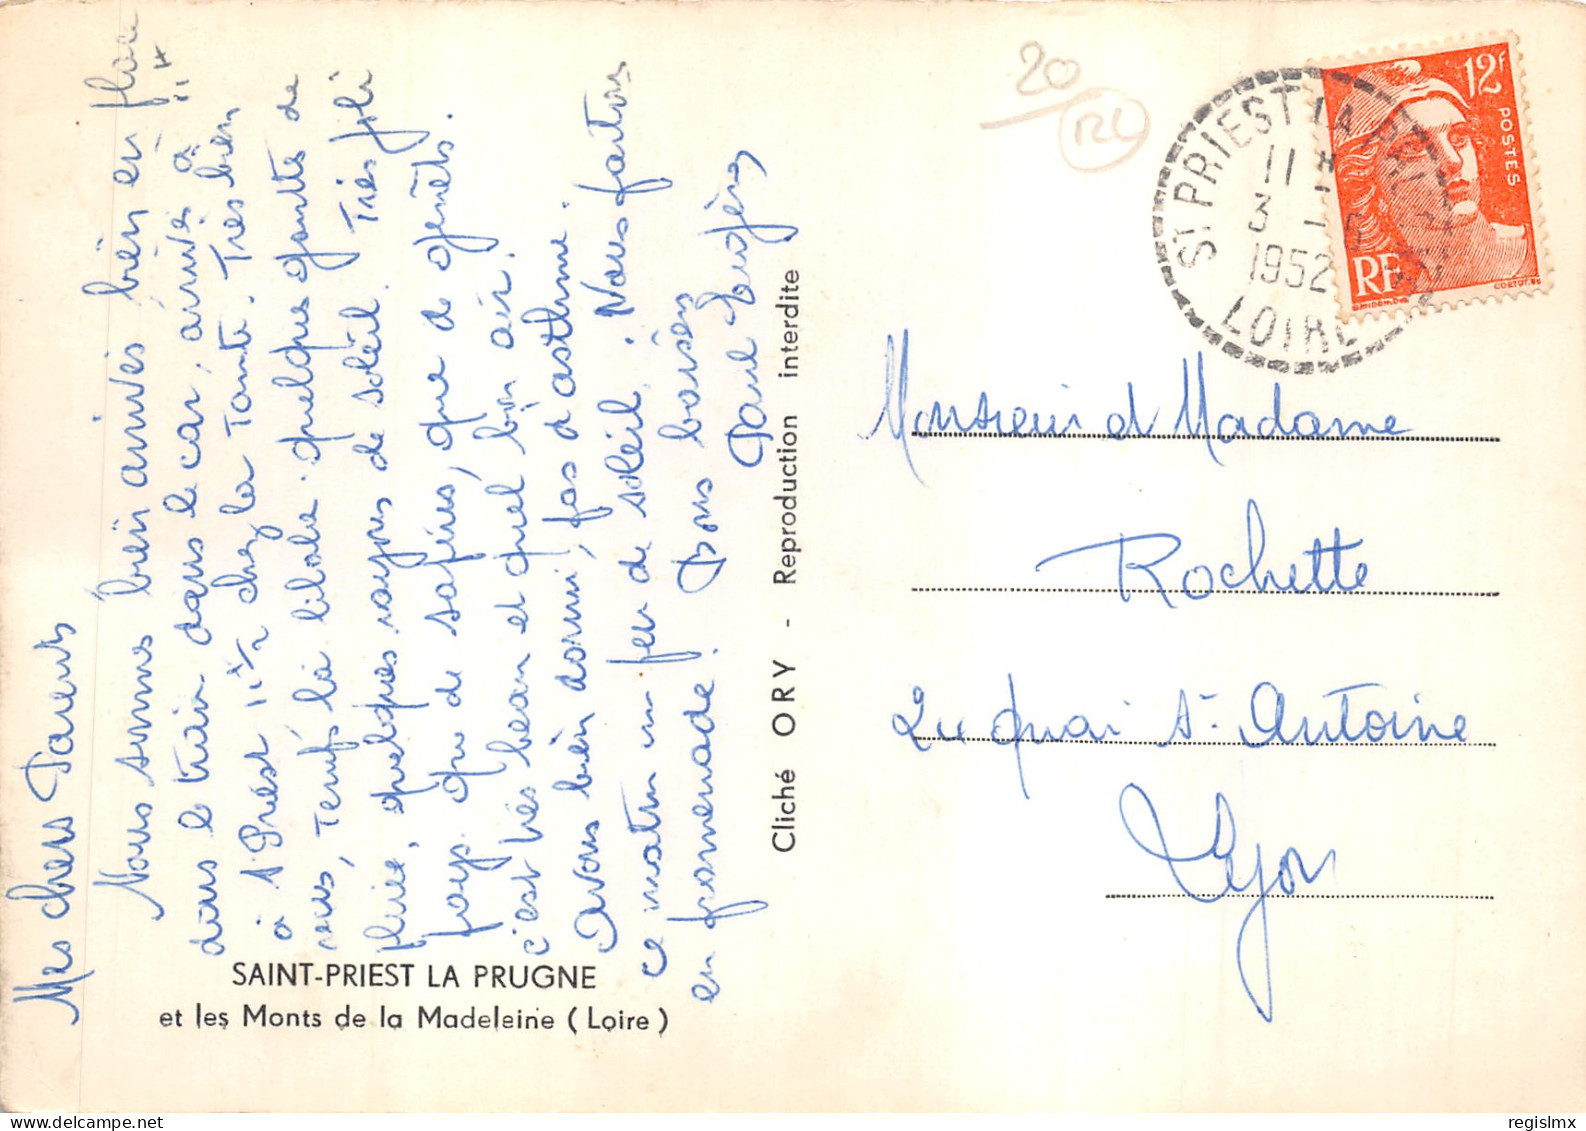 Mes chers Parents
Nous sommes bien arrivés bien en place
dans le train dans le car, arrivés à
à St Priest 11h 1/2 chez la Tante. Très bien
reçus, Temps la quelques goutte de
pluie, quelques rayons de soleil. Très joli
pays que de sapins, que de genêts.
c'est très beau et quel bon air.
Avons bien dormi, pas d'asthme.
ce matin un peu de soleil. Nous partons
en promenade. Bons baisers
Paul
SAINT-PRIEST LA PRUGNE
et les Monts de la Madeleine (Loire)
Cliché ORY - Reproduction interdite
20
12L
12F
POSTES
RF
ST PRIEST LA PRUGNE
11 H
3 - 6
1952
LOIRE
Monsieur et Madame
Rochette
24 quai St Antoine
Lyon
regislmx